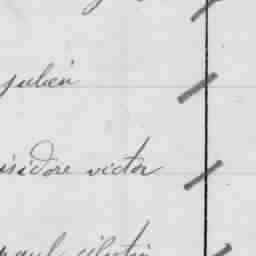 julien
isidore victor
paul célestin